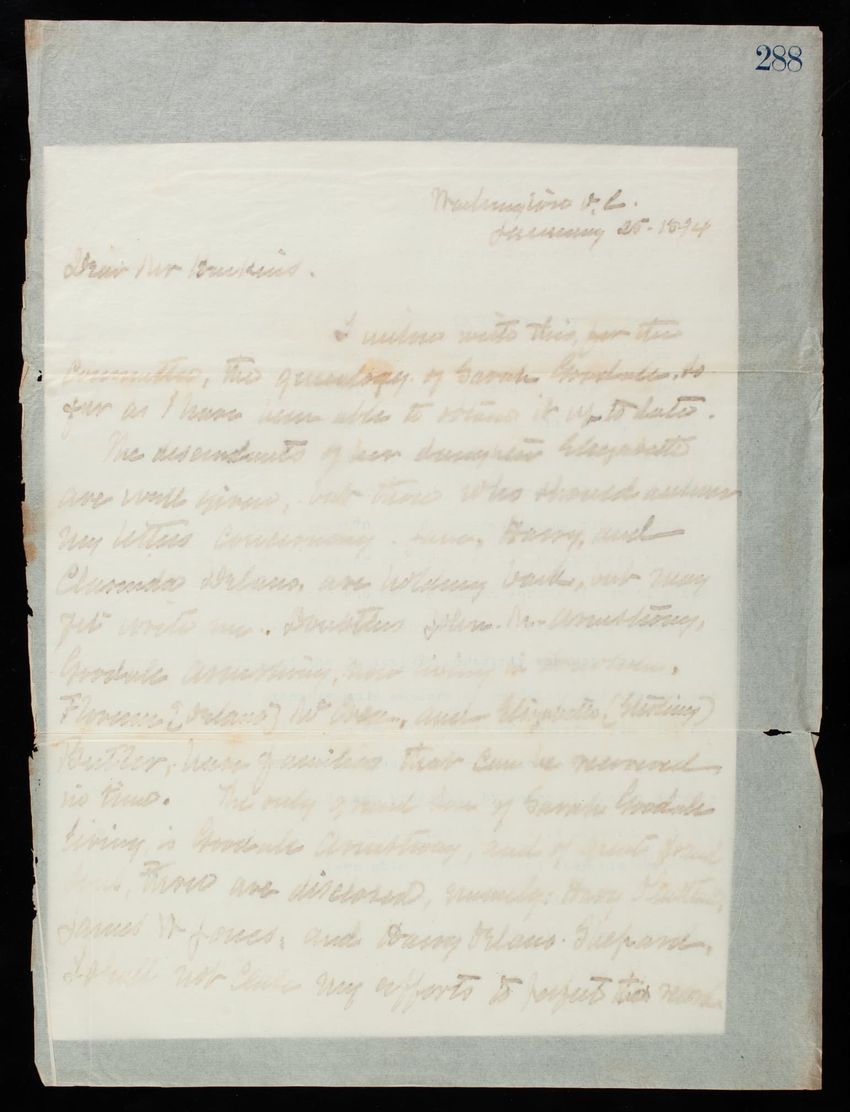 288
Washington D.C.
January 25- 1894
Dear Mr
I inclose with this, for the
Committee, the genealogy of Sarah Goodale, so
far as I have been able to obtain it up to date.
The descendants of her daughter Elizabeth
are well given, but those who should answer
my letters concerning Jane, Harry, and
Clarinda Delano, are holding back, but may
yet write me. Doubtless John M. Armstrong,
Goodale Armstrong, now living in
Florence [Delano] and Elizabeth (Sterling)
Butler, have families that can be recovered
in time. The only grand son of Sarah Goodale
living, is Goodale Armstrong, and of great grand
sons, three are disclosed, namely: Harry
James W Jones, and Harry Delano Shepard.
I shall not cease my efforts to perfect this record